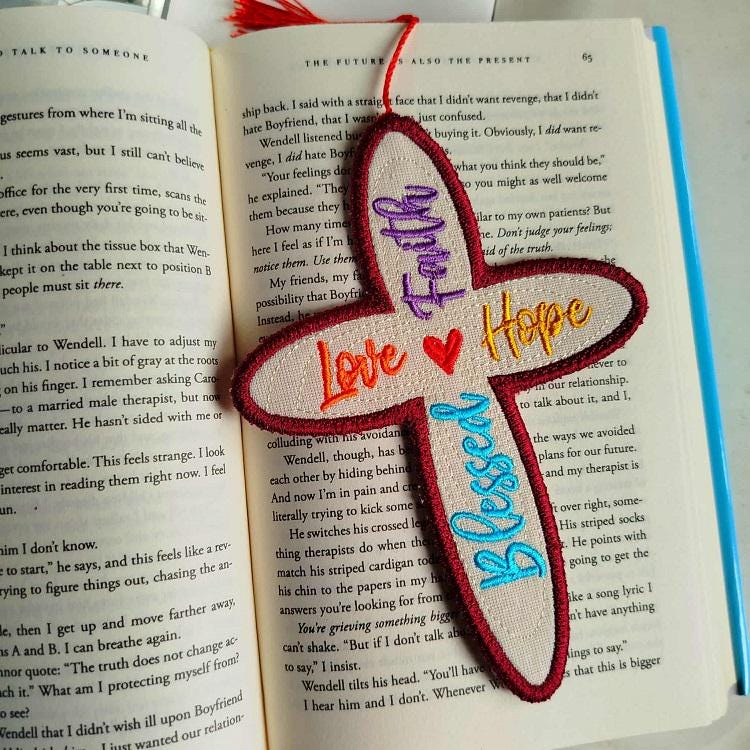 TALK TO SOMEONE
gestures from where I'm sitting all the
us seems vast, but I still can't believe
office for the very first time, scans the
ere, even though you're going to be sit-
I think about the tissue box that Wen-
kept it on the table next to position B
people must sit there.
icular to Wendell. I have to adjust my
uch his. I notice a bit of gray at the roots
on his finger. I remember asking Caro-
—to a married male therapist, but now
eally matter. He hasn't sided with me or
get comfortable. This feels strange. I look
interest in reading them right now. I feel
un.
him I don't know.
e to start," he says, and this feels like a rev-
rying to figure things out, chasing the an-
le, then I get up and move farther away,
ns A and B. I can breathe again.
nnor quote: "The truth does not change ac-
ch it." What am I protecting myself from?
o see?
Wendell that I didn't wish ill upon Boyfriend
I just wanted our relation-
THE FUTURE IS ALSO THE PRESENT 65
ship back. I said with a straight face that I didn't want revenge, that I didn't
hate Boyfriend, that I was just confused.
Wendell listened buying it. Obviously, I did want re-
venge, I did hate Boyf
"Your feelings do what you think they should be,"
he explained. "They so you might as well welcome
them because they h
How many time ilar to my own patients? But
here I feel as if I'm h me. Don't judge your feelings;
notice them. Use them aid of the truth.
My friends, my fa she
possibility that Boyfri
Instead, he
never to
in our relationship.
to talk about it, and I,
colluding with his avoidanc
Wendell, though, has b the ways we avoided
each other by hiding behind plans for our future.
And now I'm in pain and cr and my therapist is
literally trying to kick some
He switches his crossed leg t over right, some-
thing therapists do when the His striped socks
match his striped cardigan tod He points with
his chin to the papers in my ha going to get the
answers you're looking for from
You're grieving something bigger like a song lyric I
can't shake. "But if I don't talk abo n't have anything
to say," I insist.
Wendell tilts his head. "You'll have things to say."
I hear him and I don't. Whenever W es that this is bigger
Faith
Love Hope
Blessed